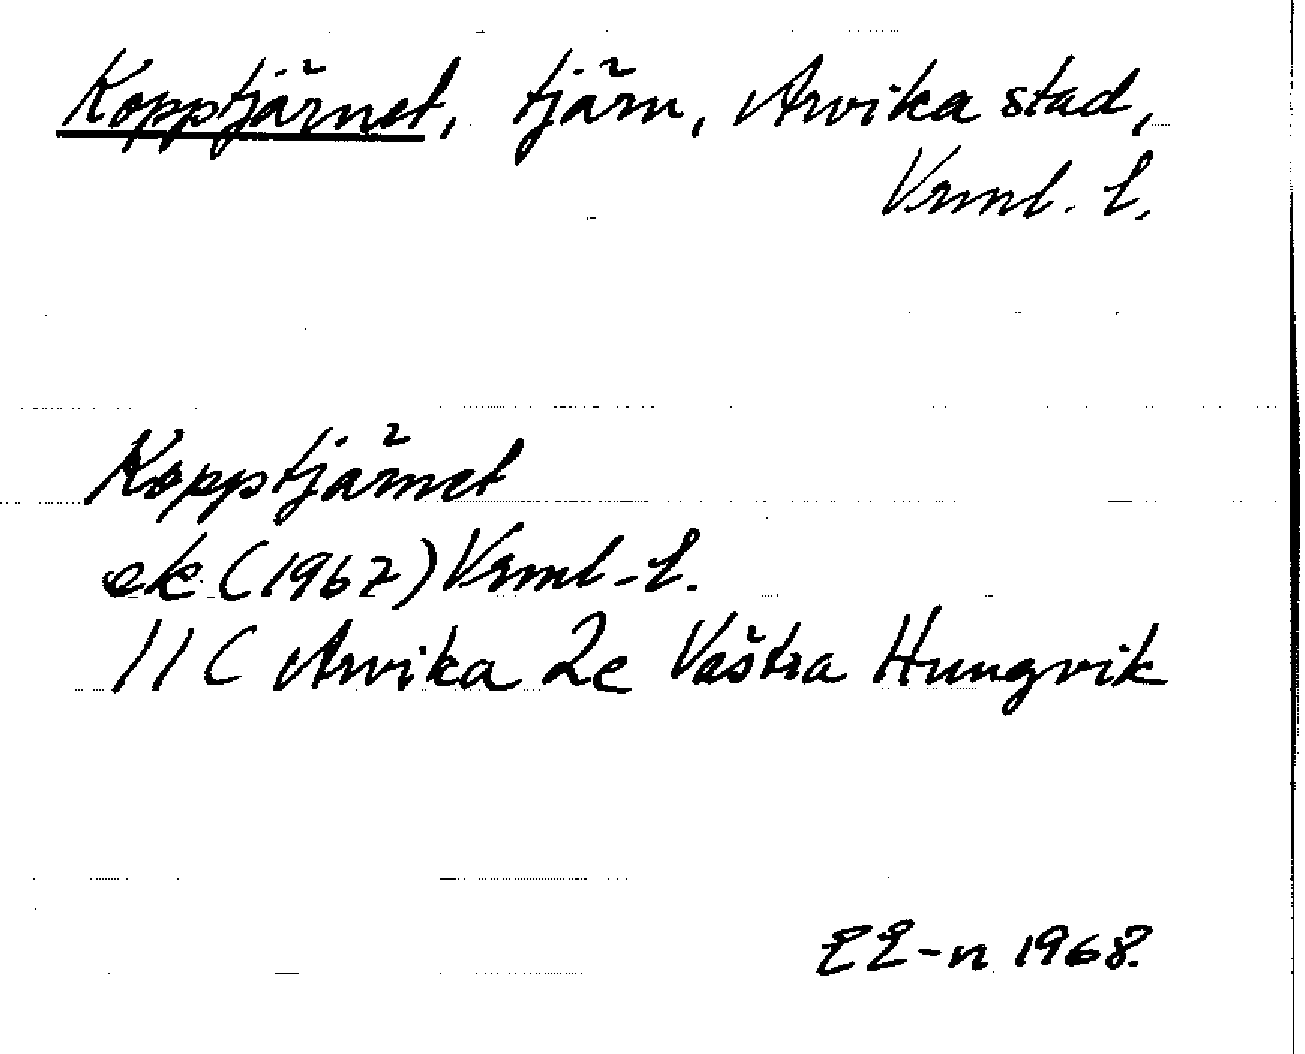 Kopptjärnet, tjärn, Arvika stad,
Vrml. l.
Kopptjärnet
ek (1967) Vrml. l.
11C Arvika 2e Västra Hungvik
EE-n 1968.